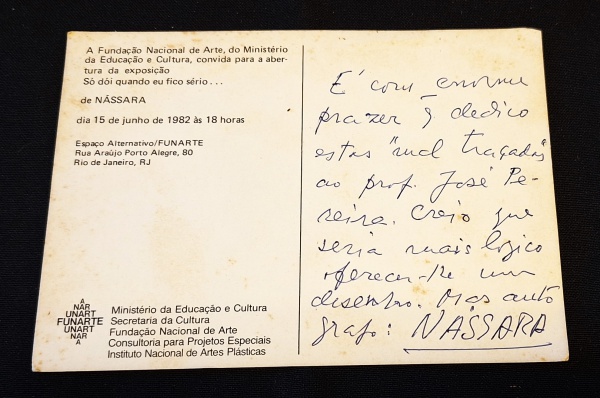 A Fundação Nacional de Arte, do Ministério
da Educação e Cultura, convida para a aber-
tura da exposição
Só dói quando eu fico sério...
de NÁSSARA
dia 15 de junho de 1982 às 18 horas
Espaço Alternativo/FUNARTE
Rua Araújo Porto Alegre, 80
Rio de Janeiro, RJ
A
NAR
UNART
FUNARTE
UNART
NAR
A
Ministério da Educação e Cultura
Secretaria da Cultura
Fundação Nacional de Arte
Consultoria para Projetos Especiais
Instituto Nacional de Artes Plásticas
É com enorme
prazer q̃ dedico
estas "mal traçadas"
ao prof. José Pe-
reira. Creio que
seria mais logico
oferecer-lhe um
desenho. Mas auto
grafo: NÁSSARA